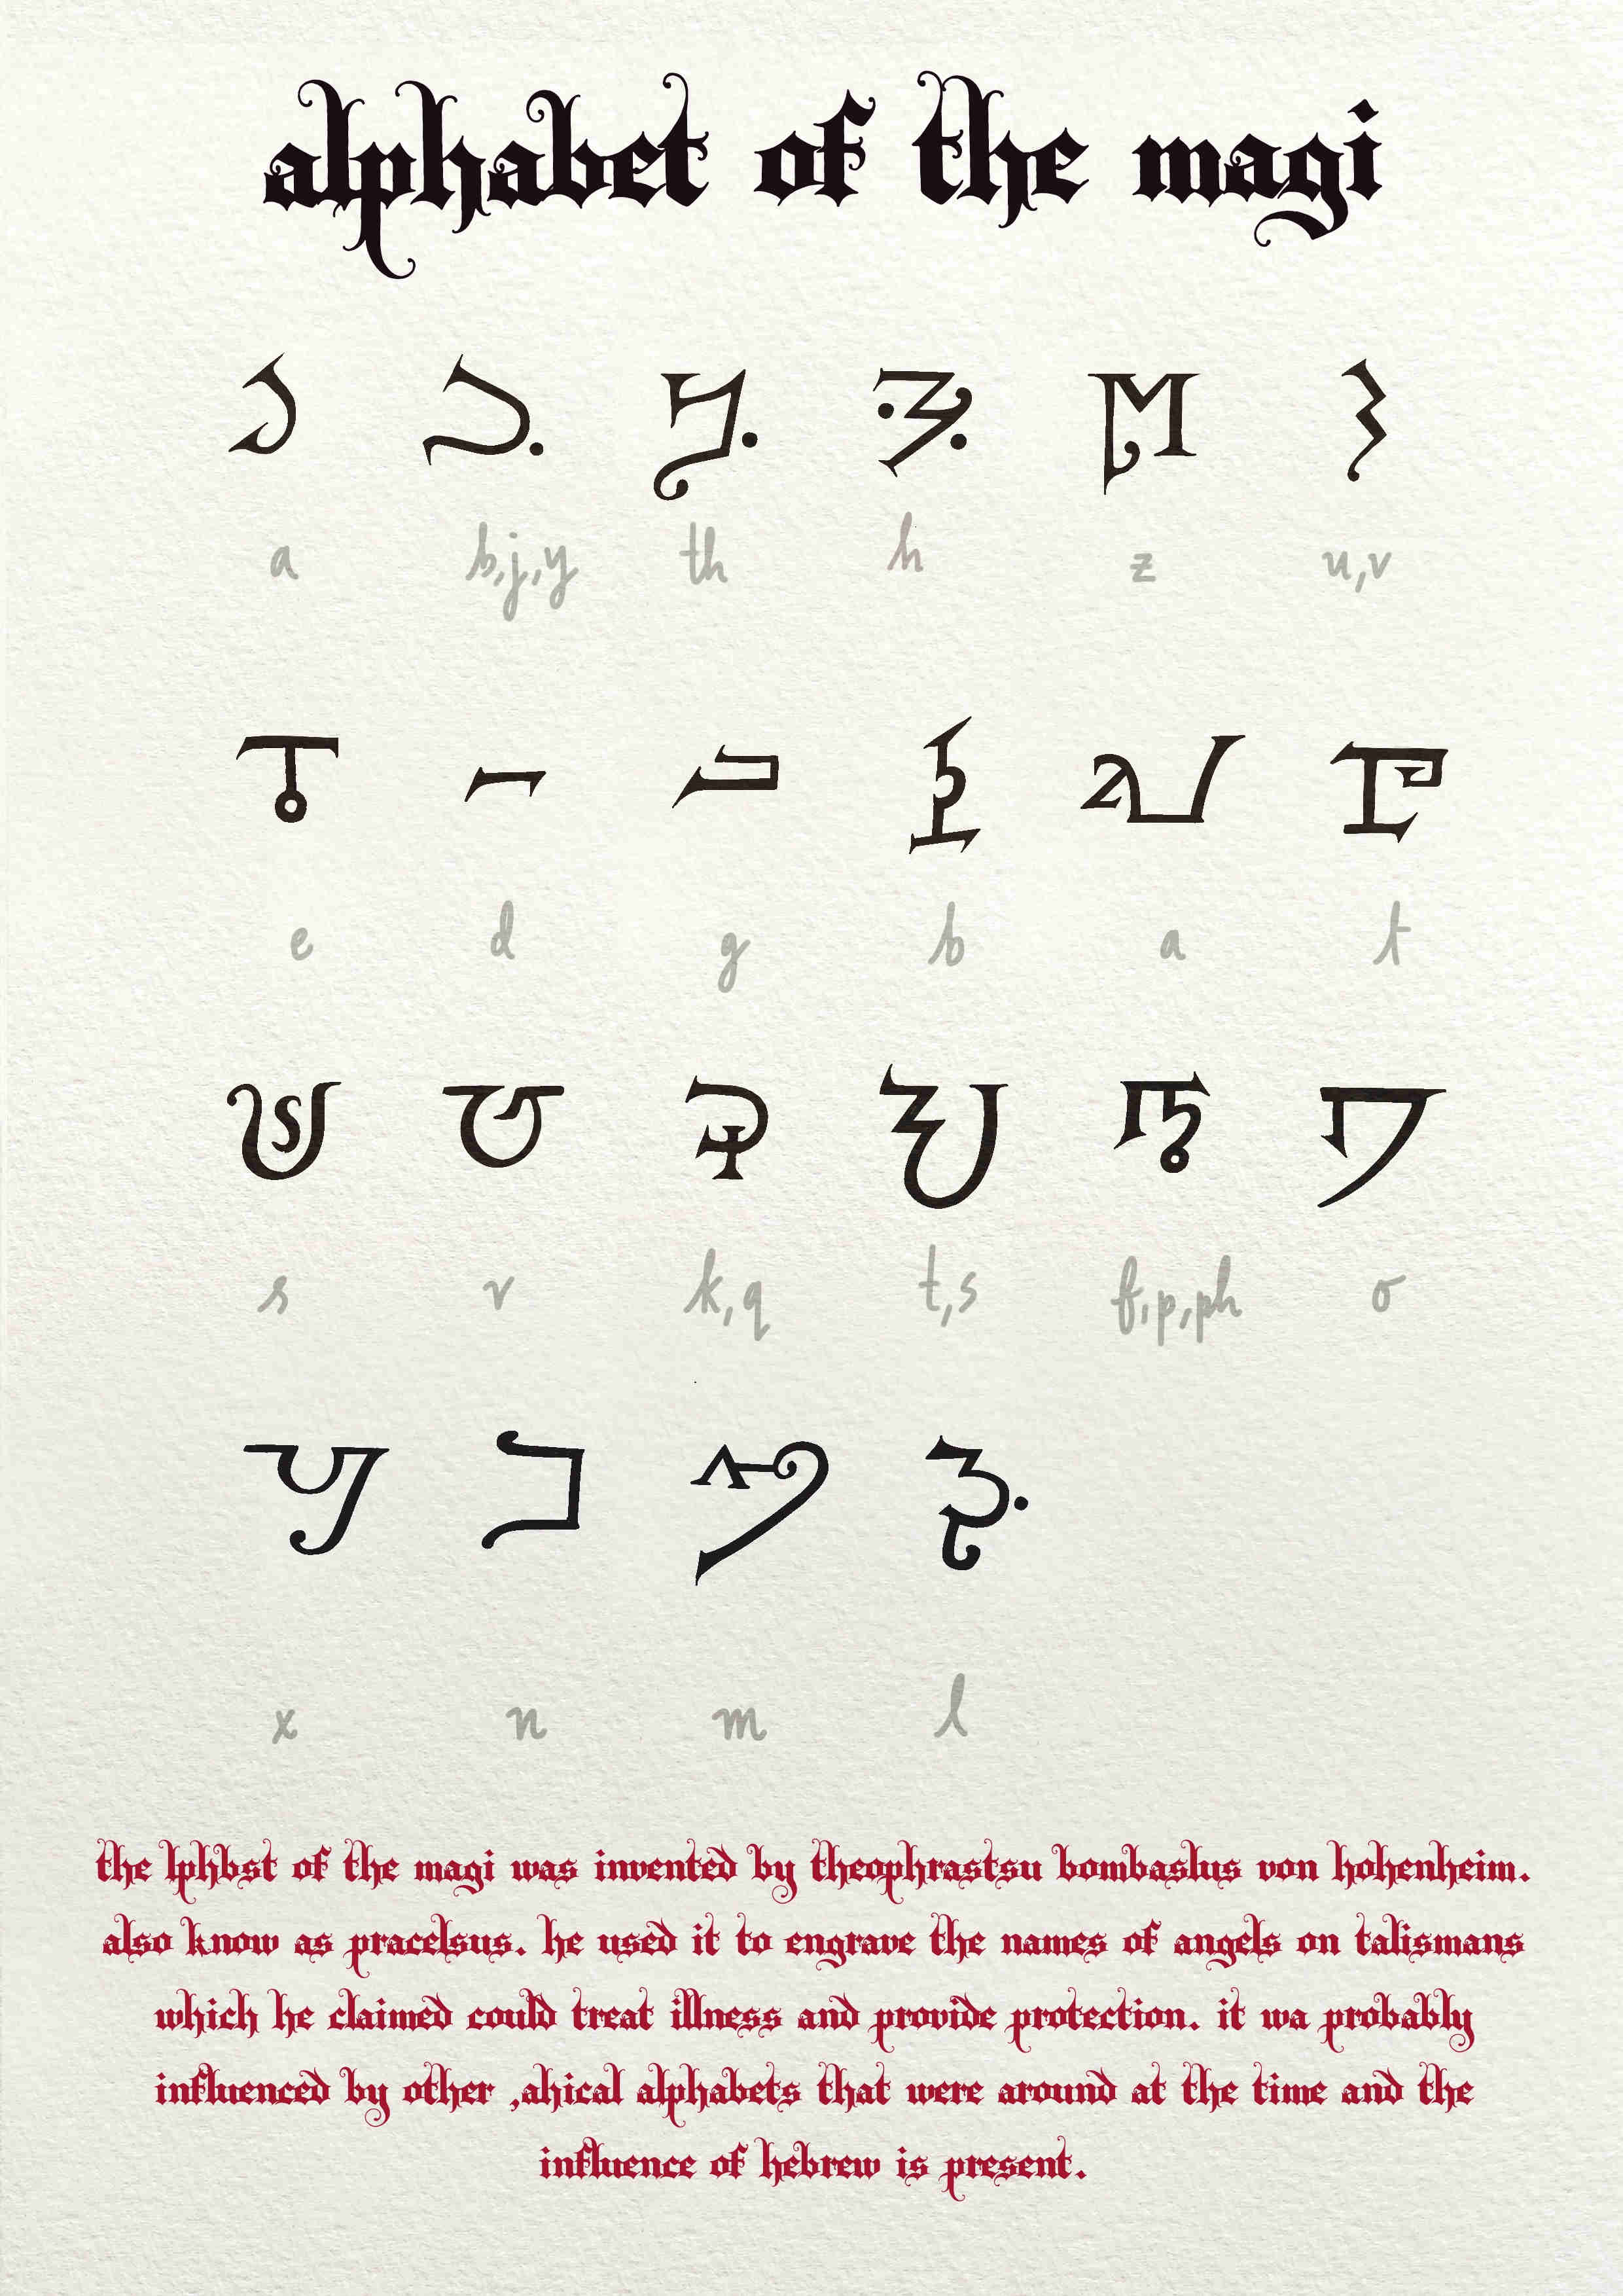 alphabet of the magi
a b,j,y th h z u,v
e d g b a t
s v k,q t,s f,p,ph o
x n m l
the lphbst of the magi was invented by theophrastsu bombaslus von hohenheim.
also know as pracelsus. he used it to engrave the names of angels on talismans
which he claimed could treat illness and provide protection. it wa probably
influenced by other ,ahical alphabets that were around at the time and the
influence of hebrew is present.